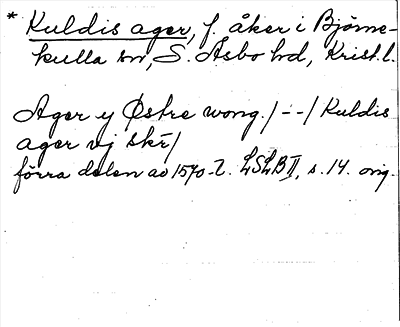 * Kuldis ager, f. åker i Björne-
kulla sn, S. Åsbo hd, Krist. l.
Ager y Østre wong. / - - / Kuldis
ager vj skr /
förra delen av 1570-t. LSLB II, s. 14. orig.